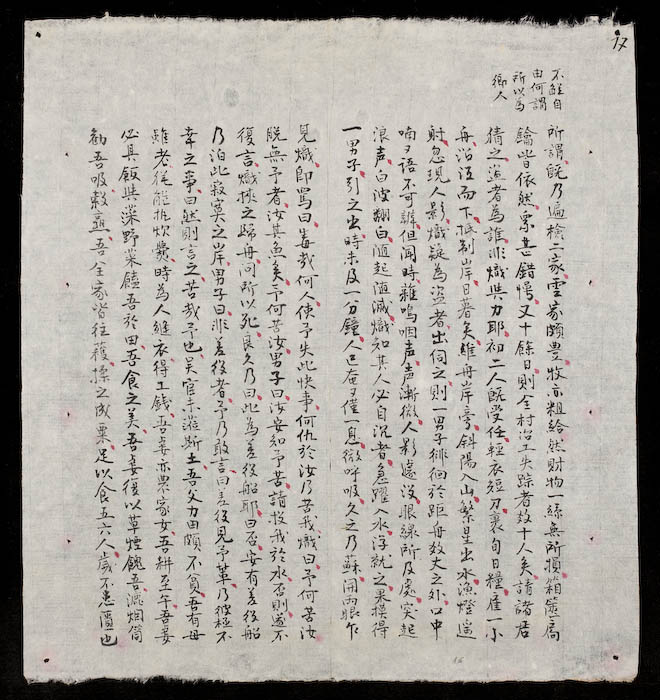 17
不能自
由何謂
所以為
鄉人
所謂既乃遍檢二家雲家頗豐牧亦粗給然財物一絲無所損箱篋扃
鑰皆依然衆甚錯愕又十餘日則全村冶工失踪者数十人矣請諸君
猜之盜者為誰非熾與力耶初二人既受任輕衣短刀裹旬日糧雇一小
舟沿江而下抵制岸日暮矣維舟岸旁斜陽入山繁星出水漁燈遠
射忽現人影熾疑為盜者出伺之則一男子徘徊於距舟数丈之外口中
喃又語不可辨但聞時雜嗚咽声声漸微人影遽没眼線所及處突起
浪声白波翻白随起随滅熾知其人必自沉者急躍入水浮就之果攫得
一男子引之出時未及一分鐘人已奄又僅一息微呼吸久之乃蘇開兩眼乍
見熾即罵曰毒哉何人使予失此快事何仇於汝乃苦我熾曰予何苦汝
脱無予者汝其魚矣予何苦汝男子曰汝安知予苦請放我於水否則遂不
復言熾挾之歸舟問所以死良久乃曰此為差役船耶曰否安有差役船
乃泊此寂寞之岸男子曰非差役者予乃敢言曰差役見予輩乃彼極不
幸之事曰然則言之苦哉予也吴官未蒞斯土吾父力田頗不貧吾有母
雖老從能執炊爨時為人縫衣得工錢吾妻亦農家女吾耕至午吾妻
必具飯與野菜饁吾於田吾食之美吾妻復以草煙餽吾烟筒
勸吾吸数吾全家皆往穫之成粟足以食五六人歲不患匱也